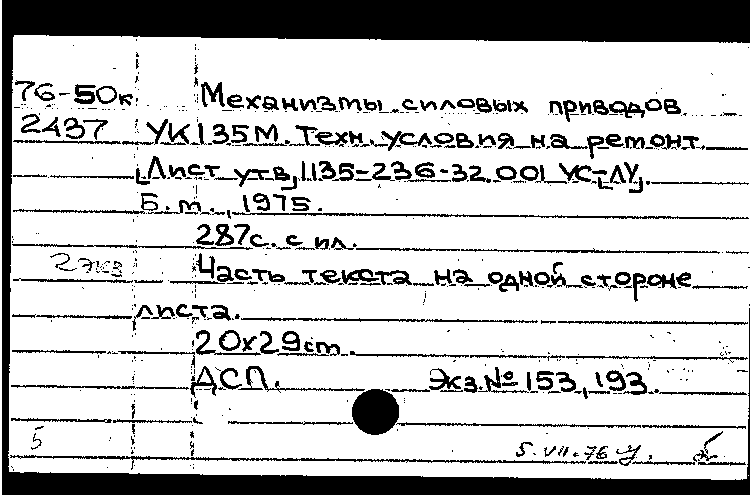 76-50к Механизмы силовых приводов
2437 УК135М. Техн. условия на ремонт.
[Лист утв.] 1135-236-32.001 УС-[ЛУ].
Б.м., 1975.
287с. с ил.
2 экз Часть текста на одной стороне
листа.
20х29cm.
ДСП. Экз.№ 153, 193.
5 5.VII.76